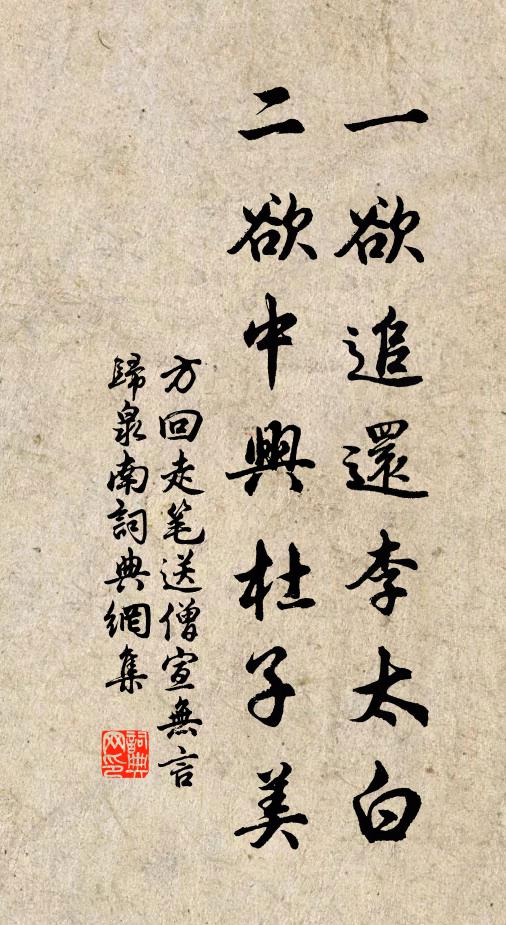 一欲追還李太白
二欲中興杜子美
方回走笔送僧宣無言
歸泉南詞典網集
詞典
网印